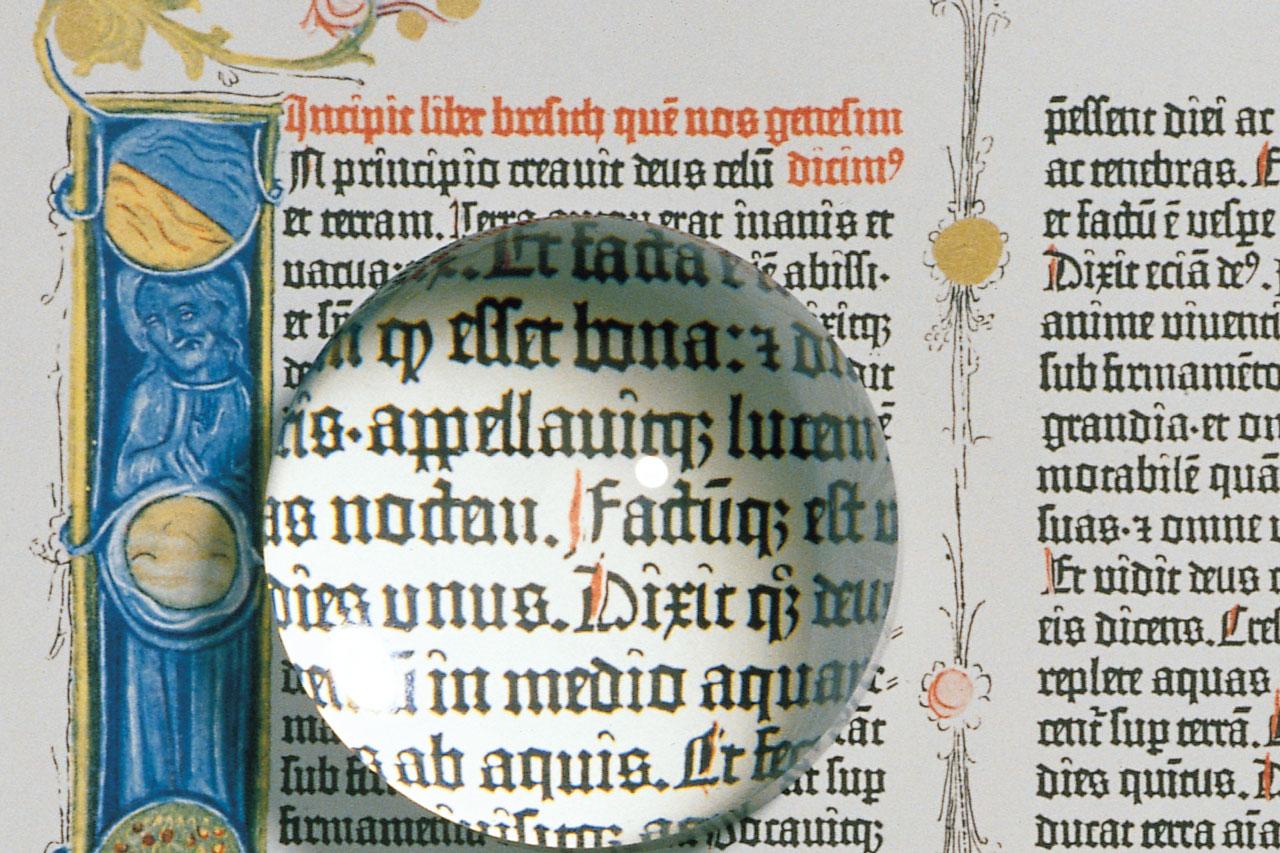 Incipit liber bresith quē nos genesim
IN principio creauit deus celū dicimꝰ
et terram. Terra autem erat inanis et
uacua: Et facta ē abissi·
et sp̄
ꝙ esset bona: ⁊
appellauitqꝫ lucem
as noctem. Factūqꝫ est
dies vnus. Dixit qꝫ deus
in medio aquar
ab aquis. Et fec
sub at sup
firmamentū vocauitqꝫ
p̄essent diei ac
ac tenebras.
et factū ē vespe
Dixit eciā deꝰ.
anime viuenti
sub firmamēto
grandia·et om
morabilē quā
suas·⁊ omne v
Et vidit deus
eis dicens. Cres
replete aquas
cent̄ sup terrā.
dies quītus.
ducat terra aīa